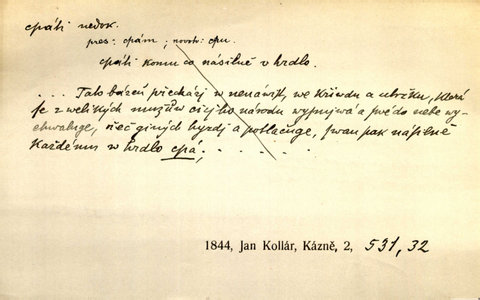 cpáti nedok.
pres: cpám; novotř: cpu.
cpáti komu co násilně v hrdlo.
. . . Tato bázeň přechází w nenáwist, we křiwdu a utržku, která
se z welikých mužůw cizjho národu wypínjwá a swé do nebe wy-
chwaluge, řeč giných hyzdj a potlačuge, swau pak násilně
každému w hrdlo cpá, . . . . . .
1844, Jan Kollár, Kázně, 2, 531, 32